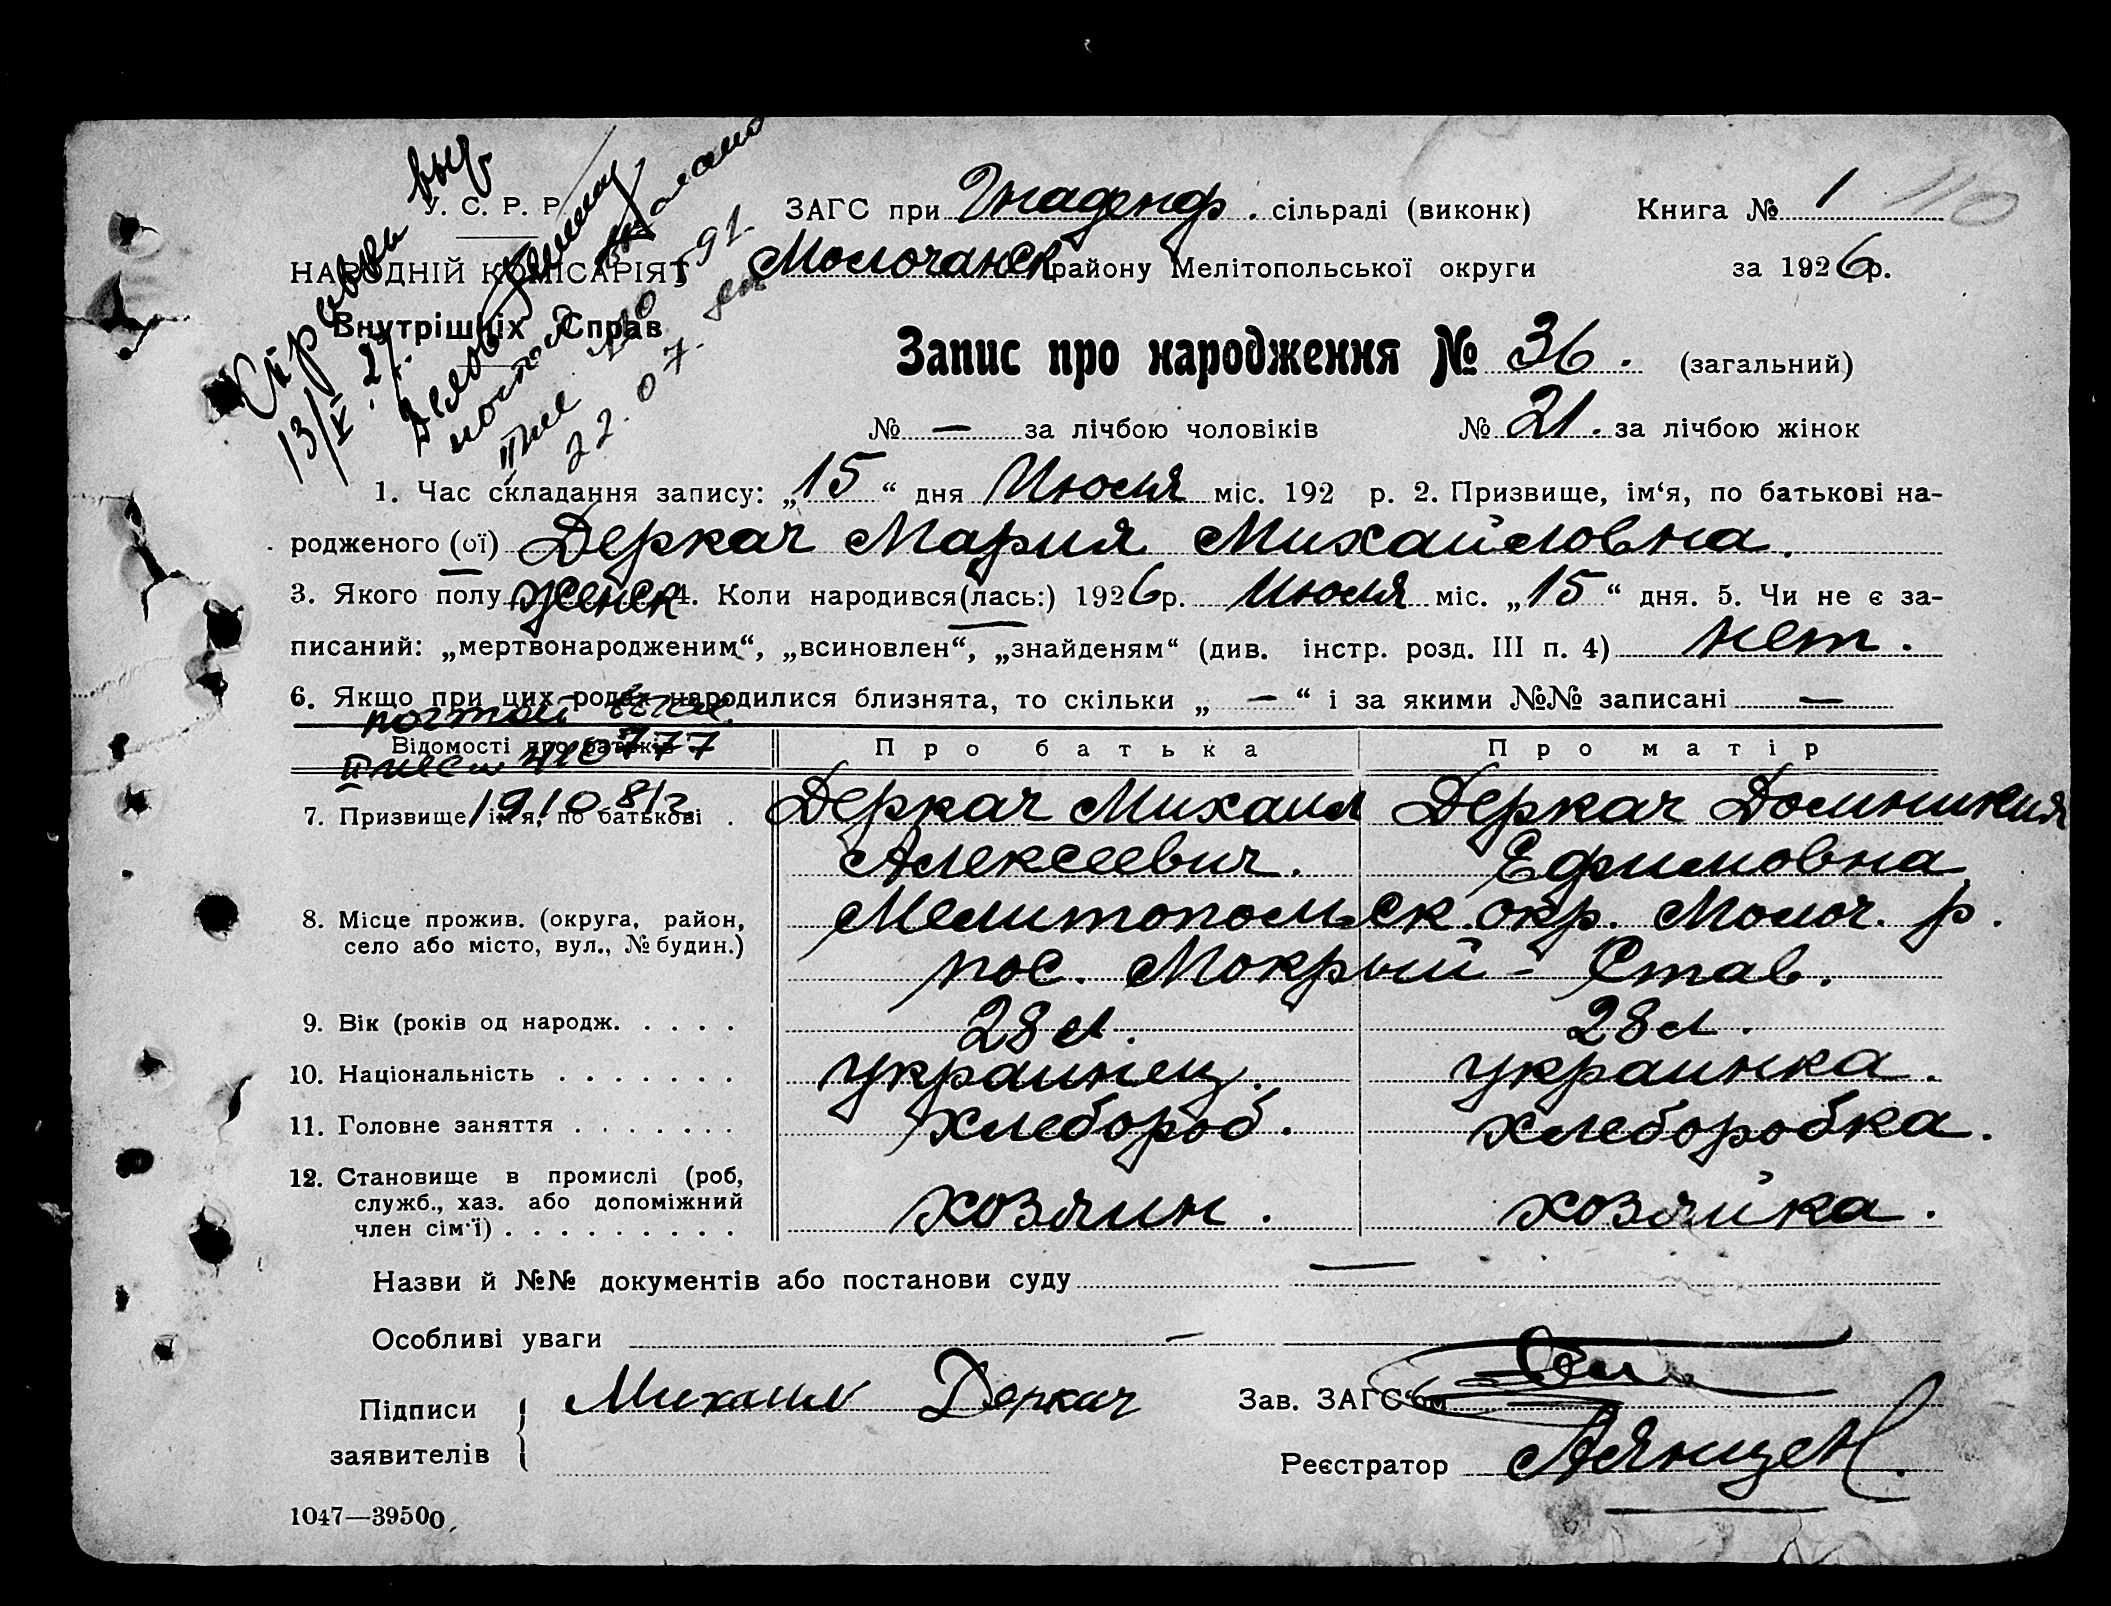 У. С. Р. Р.
НАРОДНІЙ КОМІСАРІЯТ
Внутрішніх Справ
Справка выд.
13/V. 27.
22. 07. 91.
ЗАГС при Гнаденф. сільраді (виконк)
Молочанск району Мелітопольської округи
Книга № 1 110
за 1926 р.
Запис про народження № 36. (загальний)
№ — за лічбою чоловіків № 21. за лічбою жінок
1. Час складання запису: „15“ дня Июля міс. 192 р. 2. Призвище, ім‘я, по батькові на-
родженого (ої) Деркач Мария Михайловна.
3. Якого полу женск 4. Коли народився(лась:) 1926 р. Июля міс. „15“ дня. 5. Чи не є за-
писаний: „мертвонародженим“, „всиновлен“, „знайденям“ (див. інстр. розд. III п. 4) нет.
6. Якщо при цих родах народилися близнята, то скільки „ — “ і за якими №№ записані —
Відомості про батьків Про батька Про матір
7. Призвище, ім‘я, по батькові . Деркач Михаил Деркач Домникия
Алексеевич. Ефимовна
8. Місце прожив. (округа, район, Мелитопольск. окр. Молоч. р.
село або місто, вул., № будин.) пос. Мокрый - Став.
9. Вік (років од народж. . . . . 28 л. 28 л.
10. Національність . . . . . . . украинец. украинка.
11. Головне заняття . . . . . . . хлебороб. хлеборобка.
12. Становище в промислі (роб,
служб., хаз. або допоміжний
член сім‘ї) . . . . . . . . . хозяин. хозяйка.
Назви й №№ документів або постанови суду —
Особливі уваги —
Підписи
заявителів Михаил Деркач
Зав. ЗАГС‘ом
Реєстратор
1047—39500